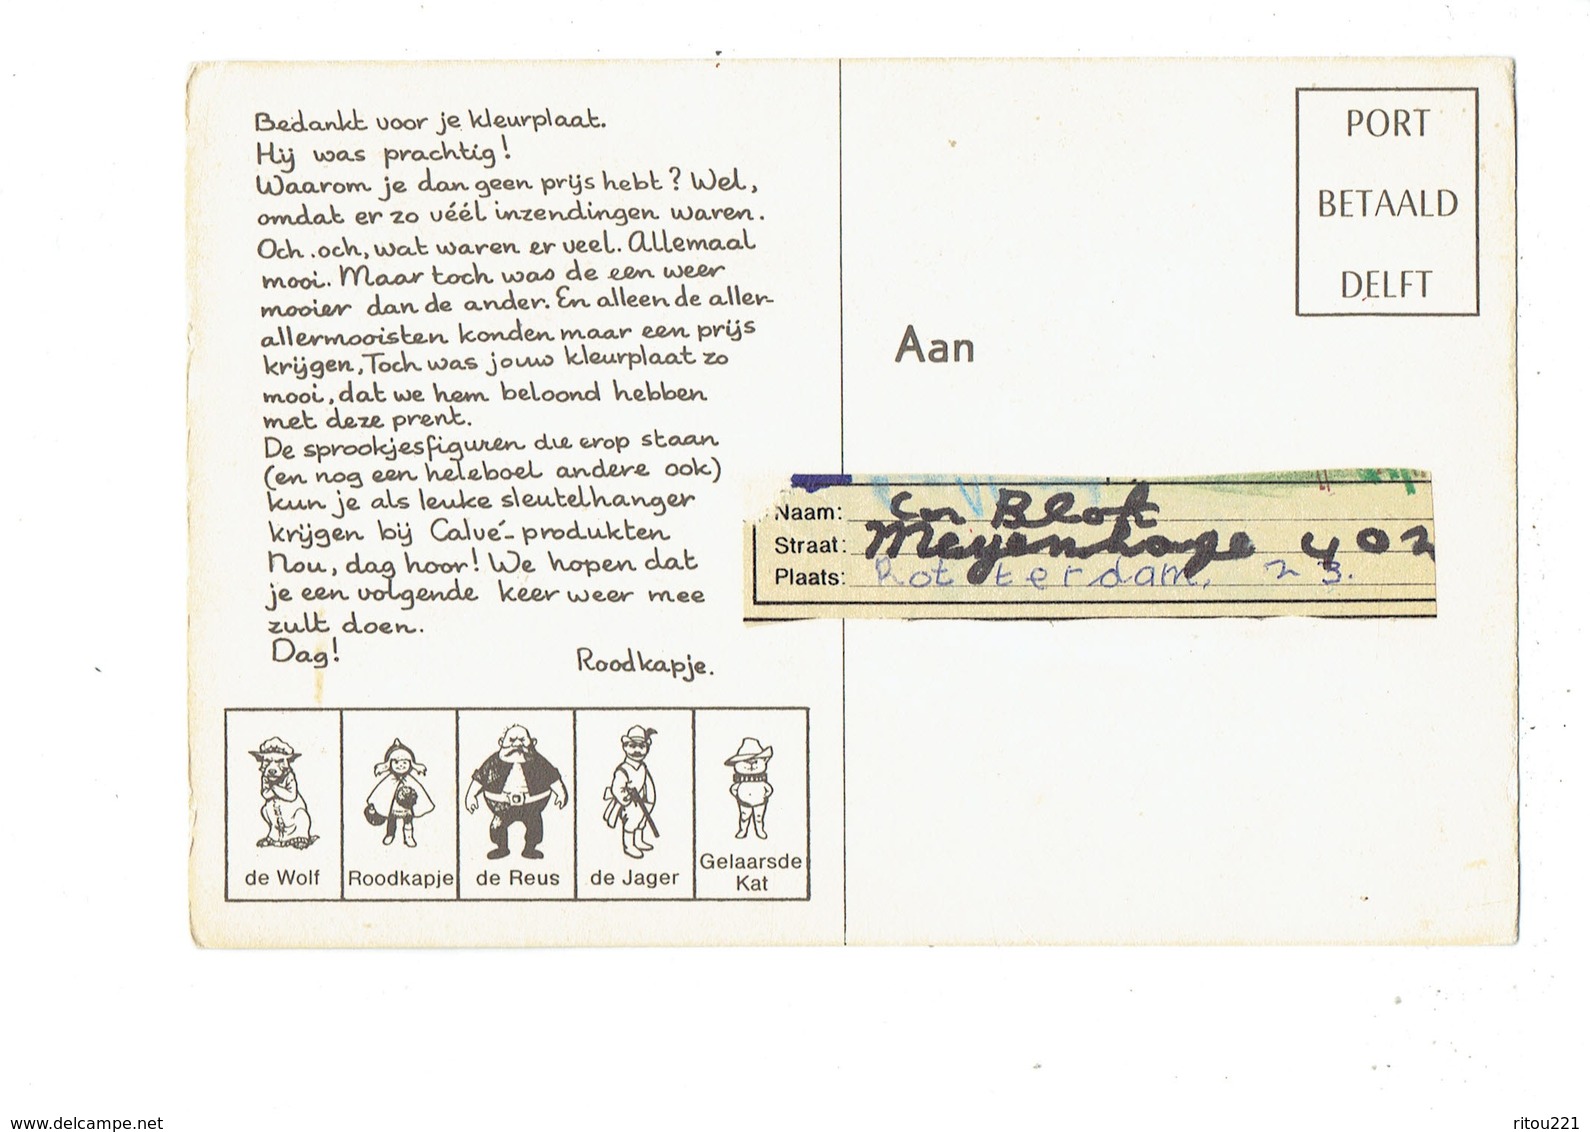 Bedankt voor je kleurplaat.
Hij was prachtig!
Waarom je dan geen prijs hebt? Wel,
omdat er zo véél inzendingen waren.
Och.och, wat waren er veel. Allemaal
mooi. Maar toch was de een weer
mooier dan de ander. En alleen de aller-
allermooisten konden maar een prijs
krijgen, Toch was jouw kleurplaat zo
mooi, dat we hem beloond hebben
met deze prent.
De sprookjesfiguren die erop staan
(en nog een heleboel andere ook)
kun je als leuke sleutelhanger
krijgen bij Calvé-produkten
Nou, dag hoor! We hopen dat
je een volgende keer weer mee
zult doen.
Dag!
Roodkapje.
de Wolf
Roodkapje
de Reus
de Jager
Gelaarsde
Kat
PORT
BETAALD
DELFT
Aan
Naam: Blok
Straat: Meyenhage 402
Plaats: Rotterdam. 23.
www.delcampe.net
ritou221